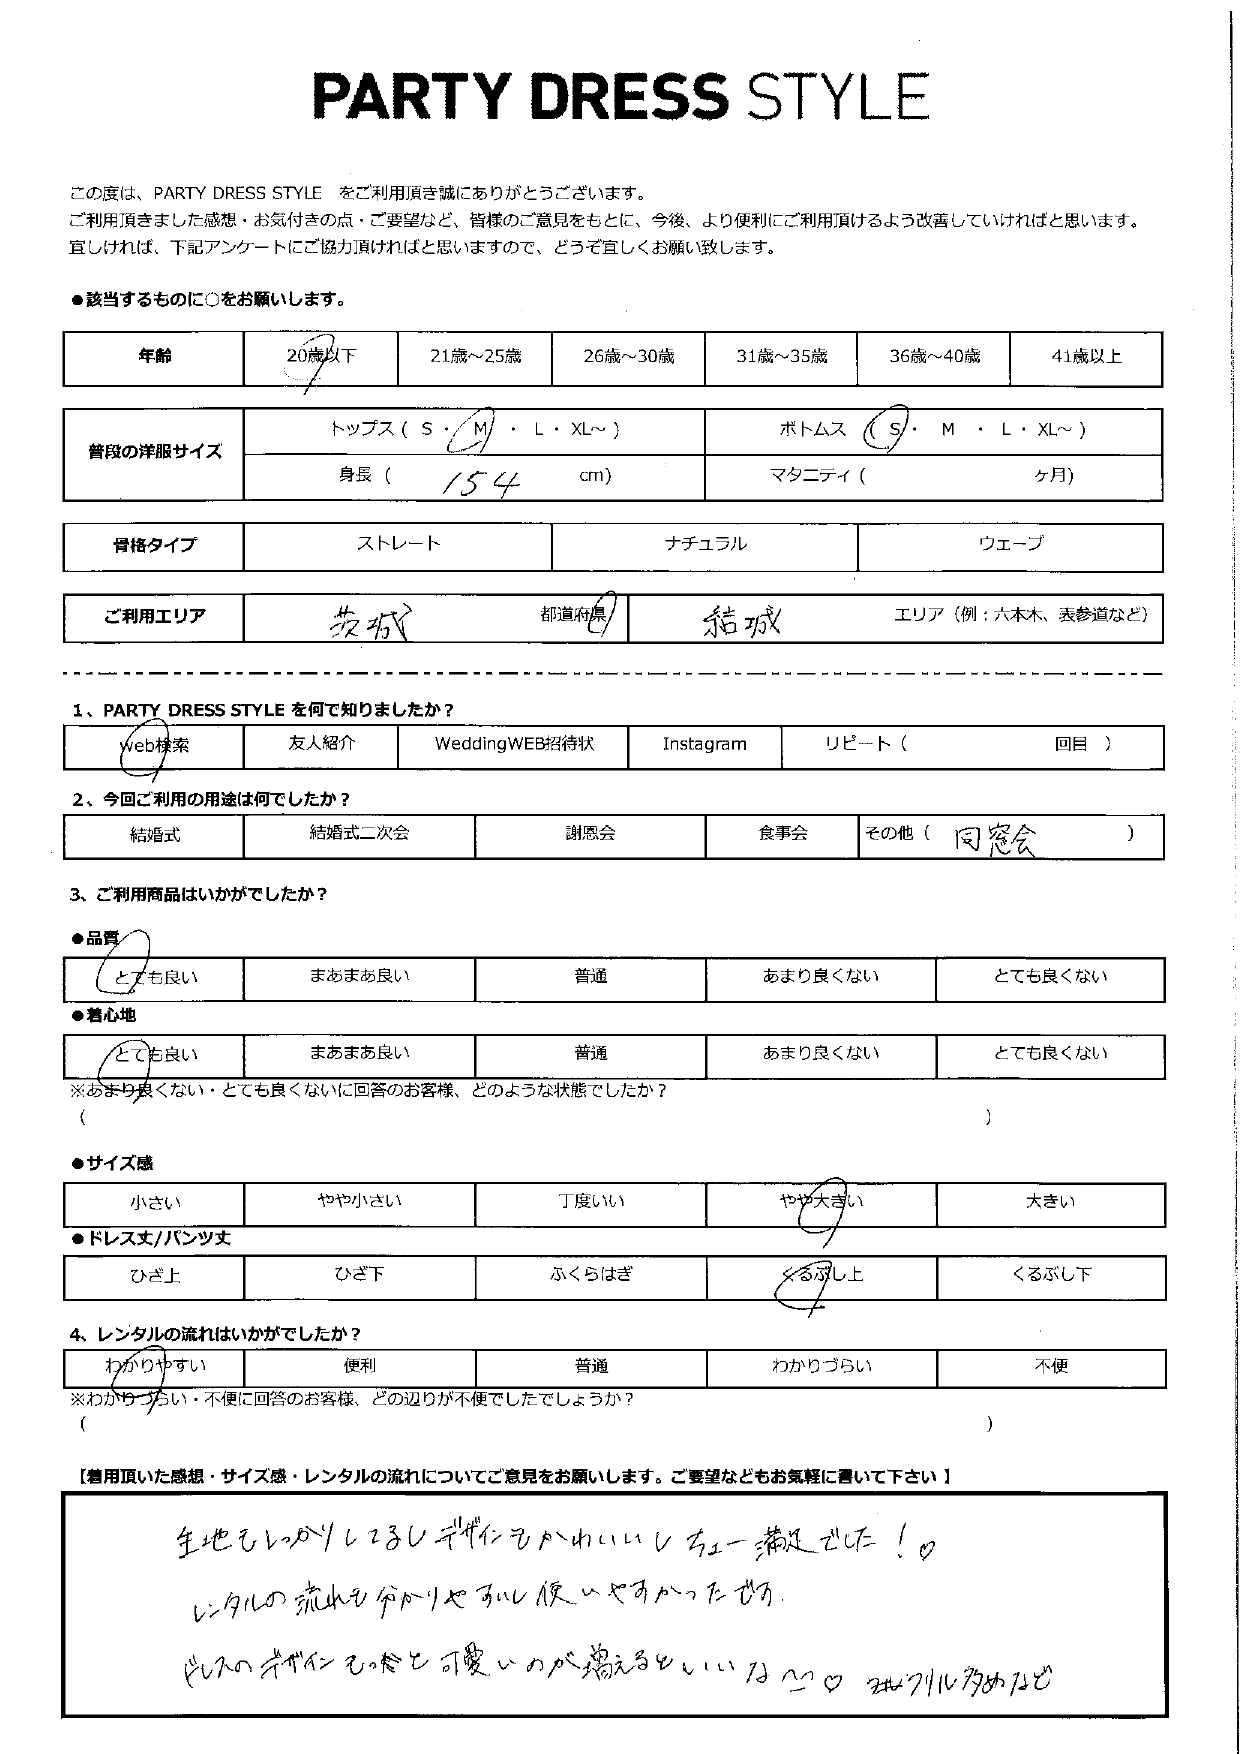 PARTY DRESS STYLE
この度は、PARTY DRESS STYLE をご利用頂き誠にありがとうございます。
ご利用頂きました感想・お気付きの点・ご要望など、皆様のご意見をもとに、今後、より便利にご利用頂けるよう改善していければと思います。
宜しければ、下記アンケートにご協力頂ければと思いますので、どうぞ宜しくお願い致します。
●該当するものに○をお願いします。
年齢 20歳以下 21歳～25歳 26歳～30歳 31歳～35歳 36歳～40歳 41歳以上
普段の洋服サイズ トップス ( S ・ M ・ L ・ XL～ ) ボトムス ( S ・ M ・ L ・ XL～ )
身長 ( 154 cm) マタニティ ( ヶ月)
骨格タイプ ストレート ナチュラル ウェーブ
ご利用エリア 茨城 都道府県 結城 エリア（例：六本木、表参道など）
1、PARTY DRESS STYLE を何で知りましたか？
web検索 友人紹介 WeddingWEB招待状 Instagram リピート ( 回目 )
2、今回ご利用の用途は何でしたか？
結婚式 結婚式二次会 謝恩会 食事会 その他 ( 同窓会 )
3、ご利用商品はいかがでしたか？
●品質
とても良い まあまあ良い 普通 あまり良くない とても良くない
●着心地
とても良い まあまあ良い 普通 あまり良くない とても良くない
※あまり良くない・とても良くないに回答のお客様、どのような状態でしたか？
( )
●サイズ感
小さい やや小さい 丁度いい やや大きい 大きい
●ドレス丈/パンツ丈
ひざ上 ひざ下 ふくらはぎ くるぶし上 くるぶし下
4、レンタルの流れはいかがでしたか？
わかりやすい 便利 普通 わかりづらい 不便
※わかりづらい・不便に回答のお客様、どの辺りが不便でしたでしょうか？
( )
【着用頂いた感想・サイズ感・レンタルの流れについてご意見をお願いします。ご要望などもお気軽に書いて下さい 】
生地もしっかりしてるしデザインもかわいいしちょー満足でした！♡
レンタルの流れも分かりやすいし使いやすかったです.
ドレスのデザインもっと可愛いのが増えるといいな♡ フリル多めなど